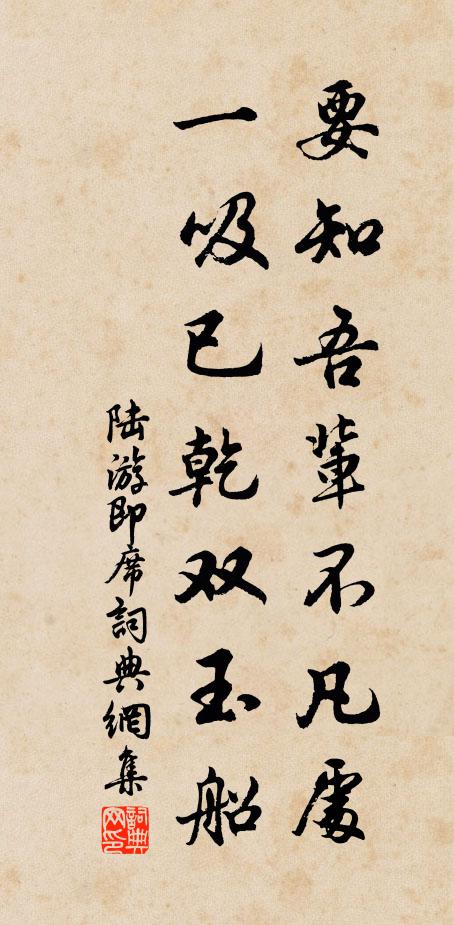 要知吾輩不凡處
一吸已乾双玉船
陆游即席詞典網集
詞典網印